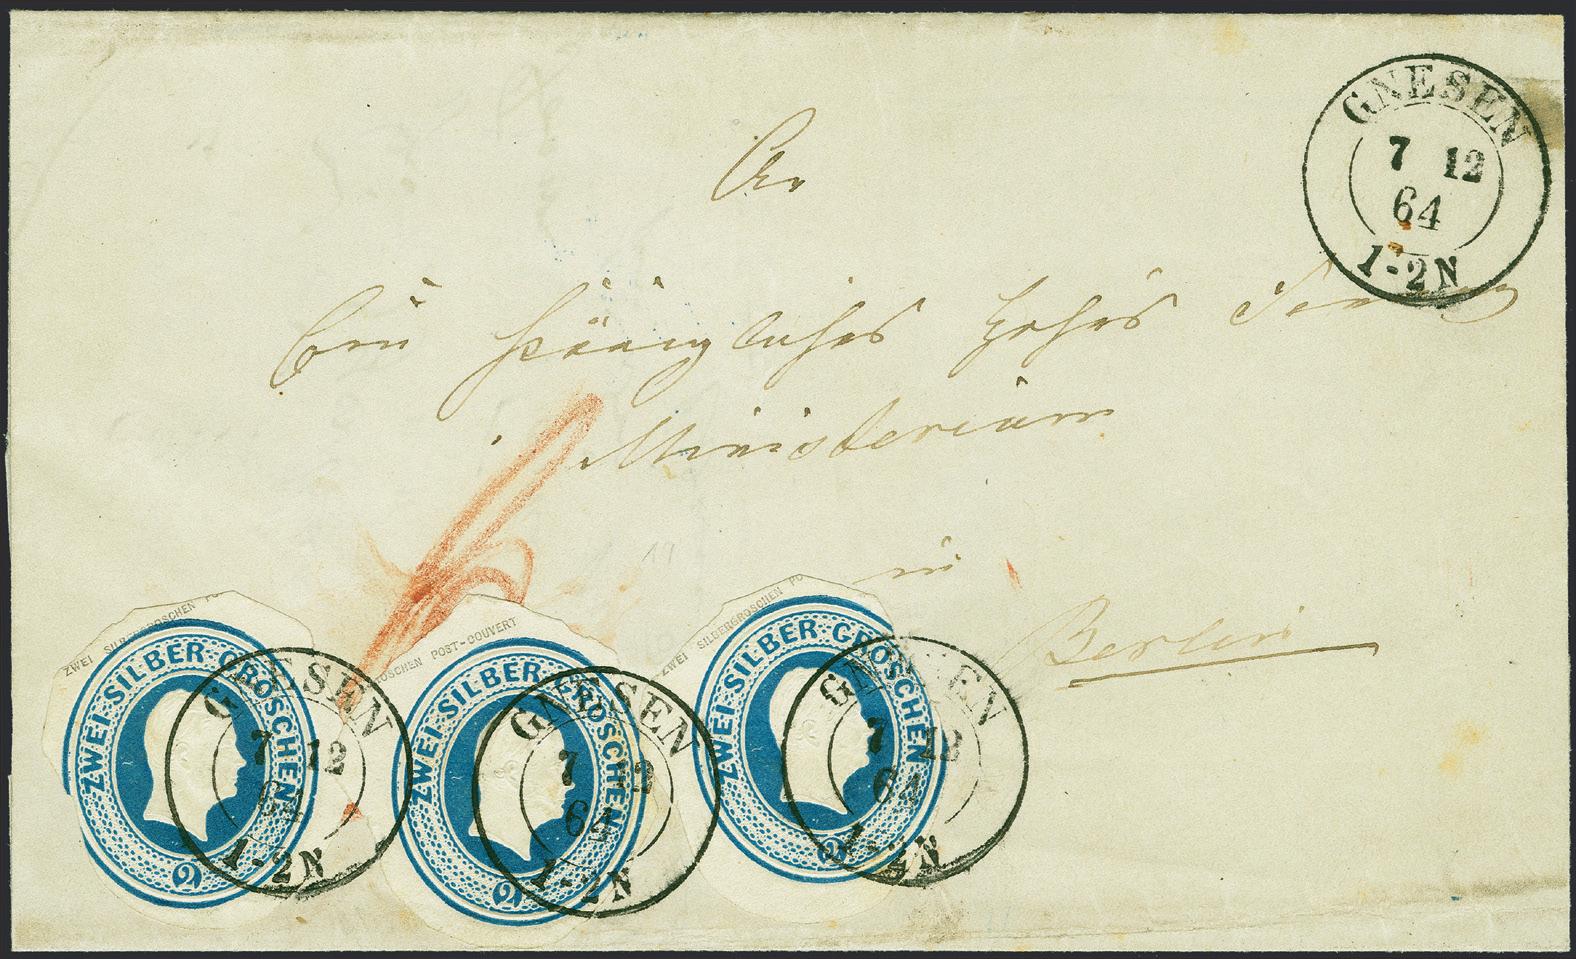 GNESEN
7 12
64
1-2N
An
Ein
Hohes
Ministerium
in
Berlin
ZWEI SILBERGROSCHEN PO
ZWEI·SILBER·GROSCHEN
2
GNESEN
7 12
64
1-2N
OSCHEN POST-COUVERT
ZWEI·SILBER·GROSCHEN
2
GNESEN
7 12
64
1-2N
ZWEI SILBERGROSCHEN PO
ZWEI·SILBER·GROSCHEN
2
GNESEN
7 12
64
1-2N